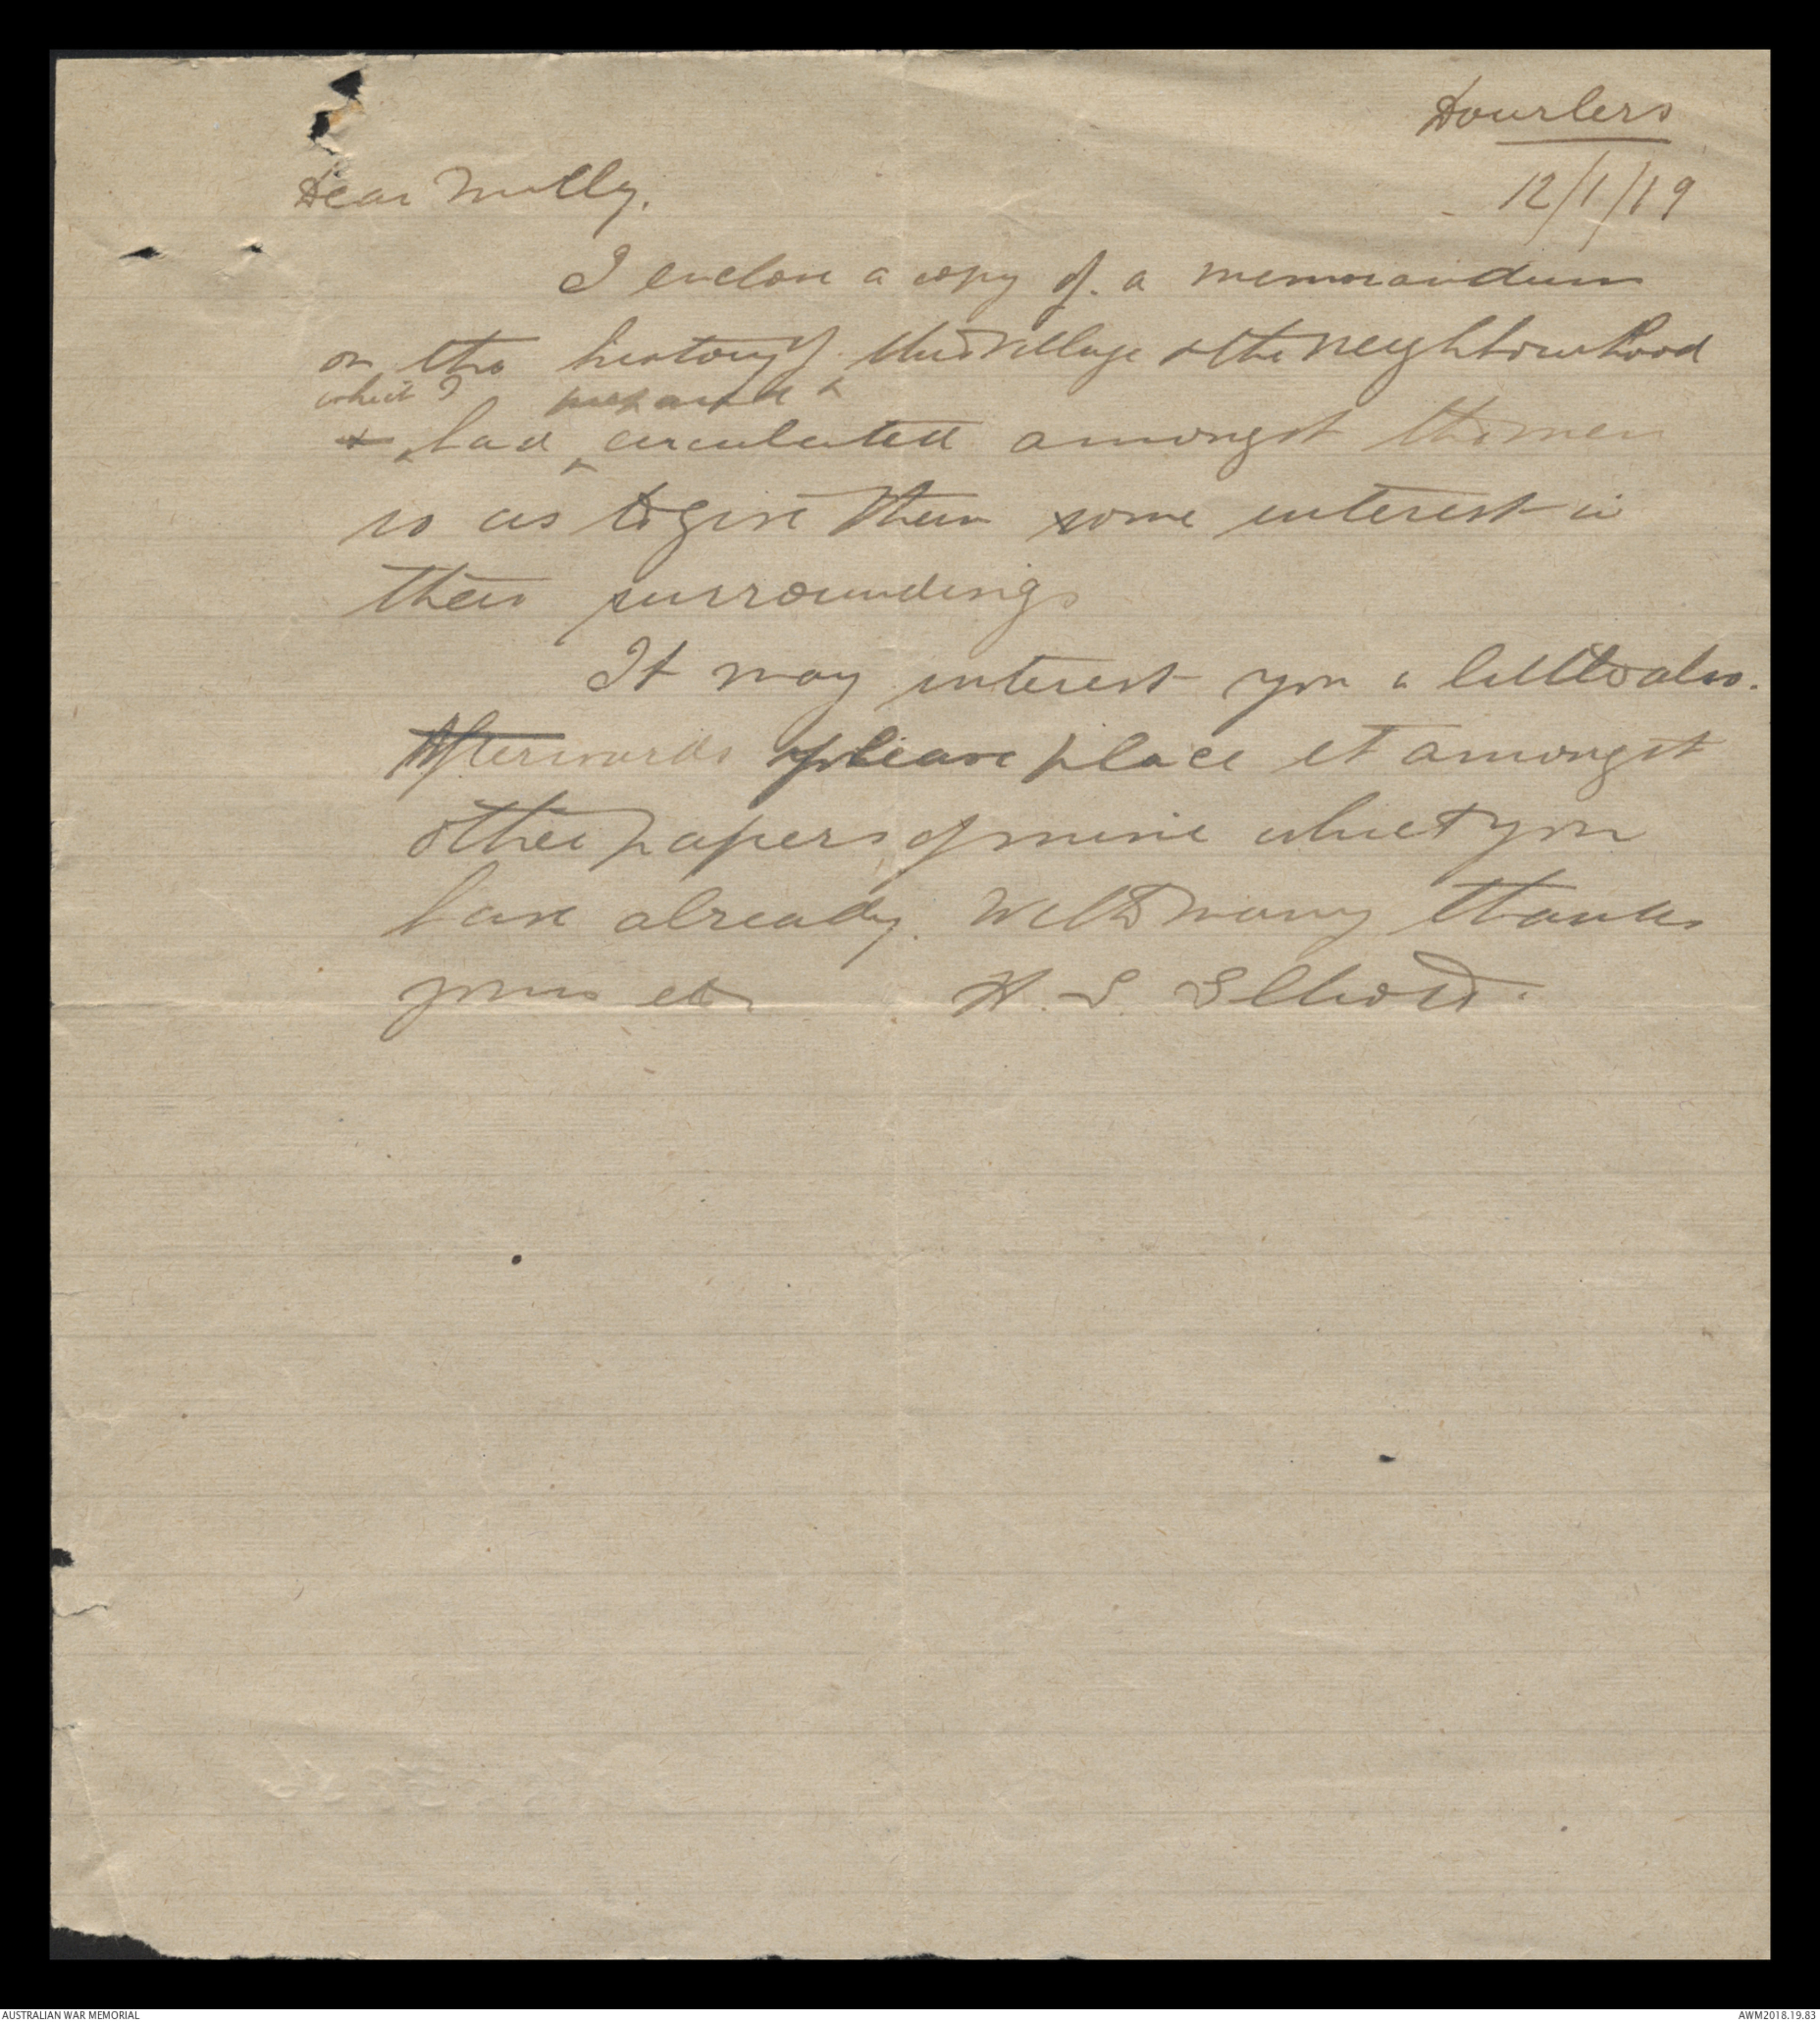 Dourlers
12/1/19
Dear Milly.
I enclose a copy of a memorandum
on the history of this village & the neighbourhood
which I prepared &
& had circulated amongst the men
so as to give them some interest in
their surroundings
It may interest you a little also.
Afterwards please place it amongst
other papers of mine which you
have already. With many thanks
yours etc H. E. Elliott.
AUSTRALIAN WAR MEMORIAL
AWM2018.19.83